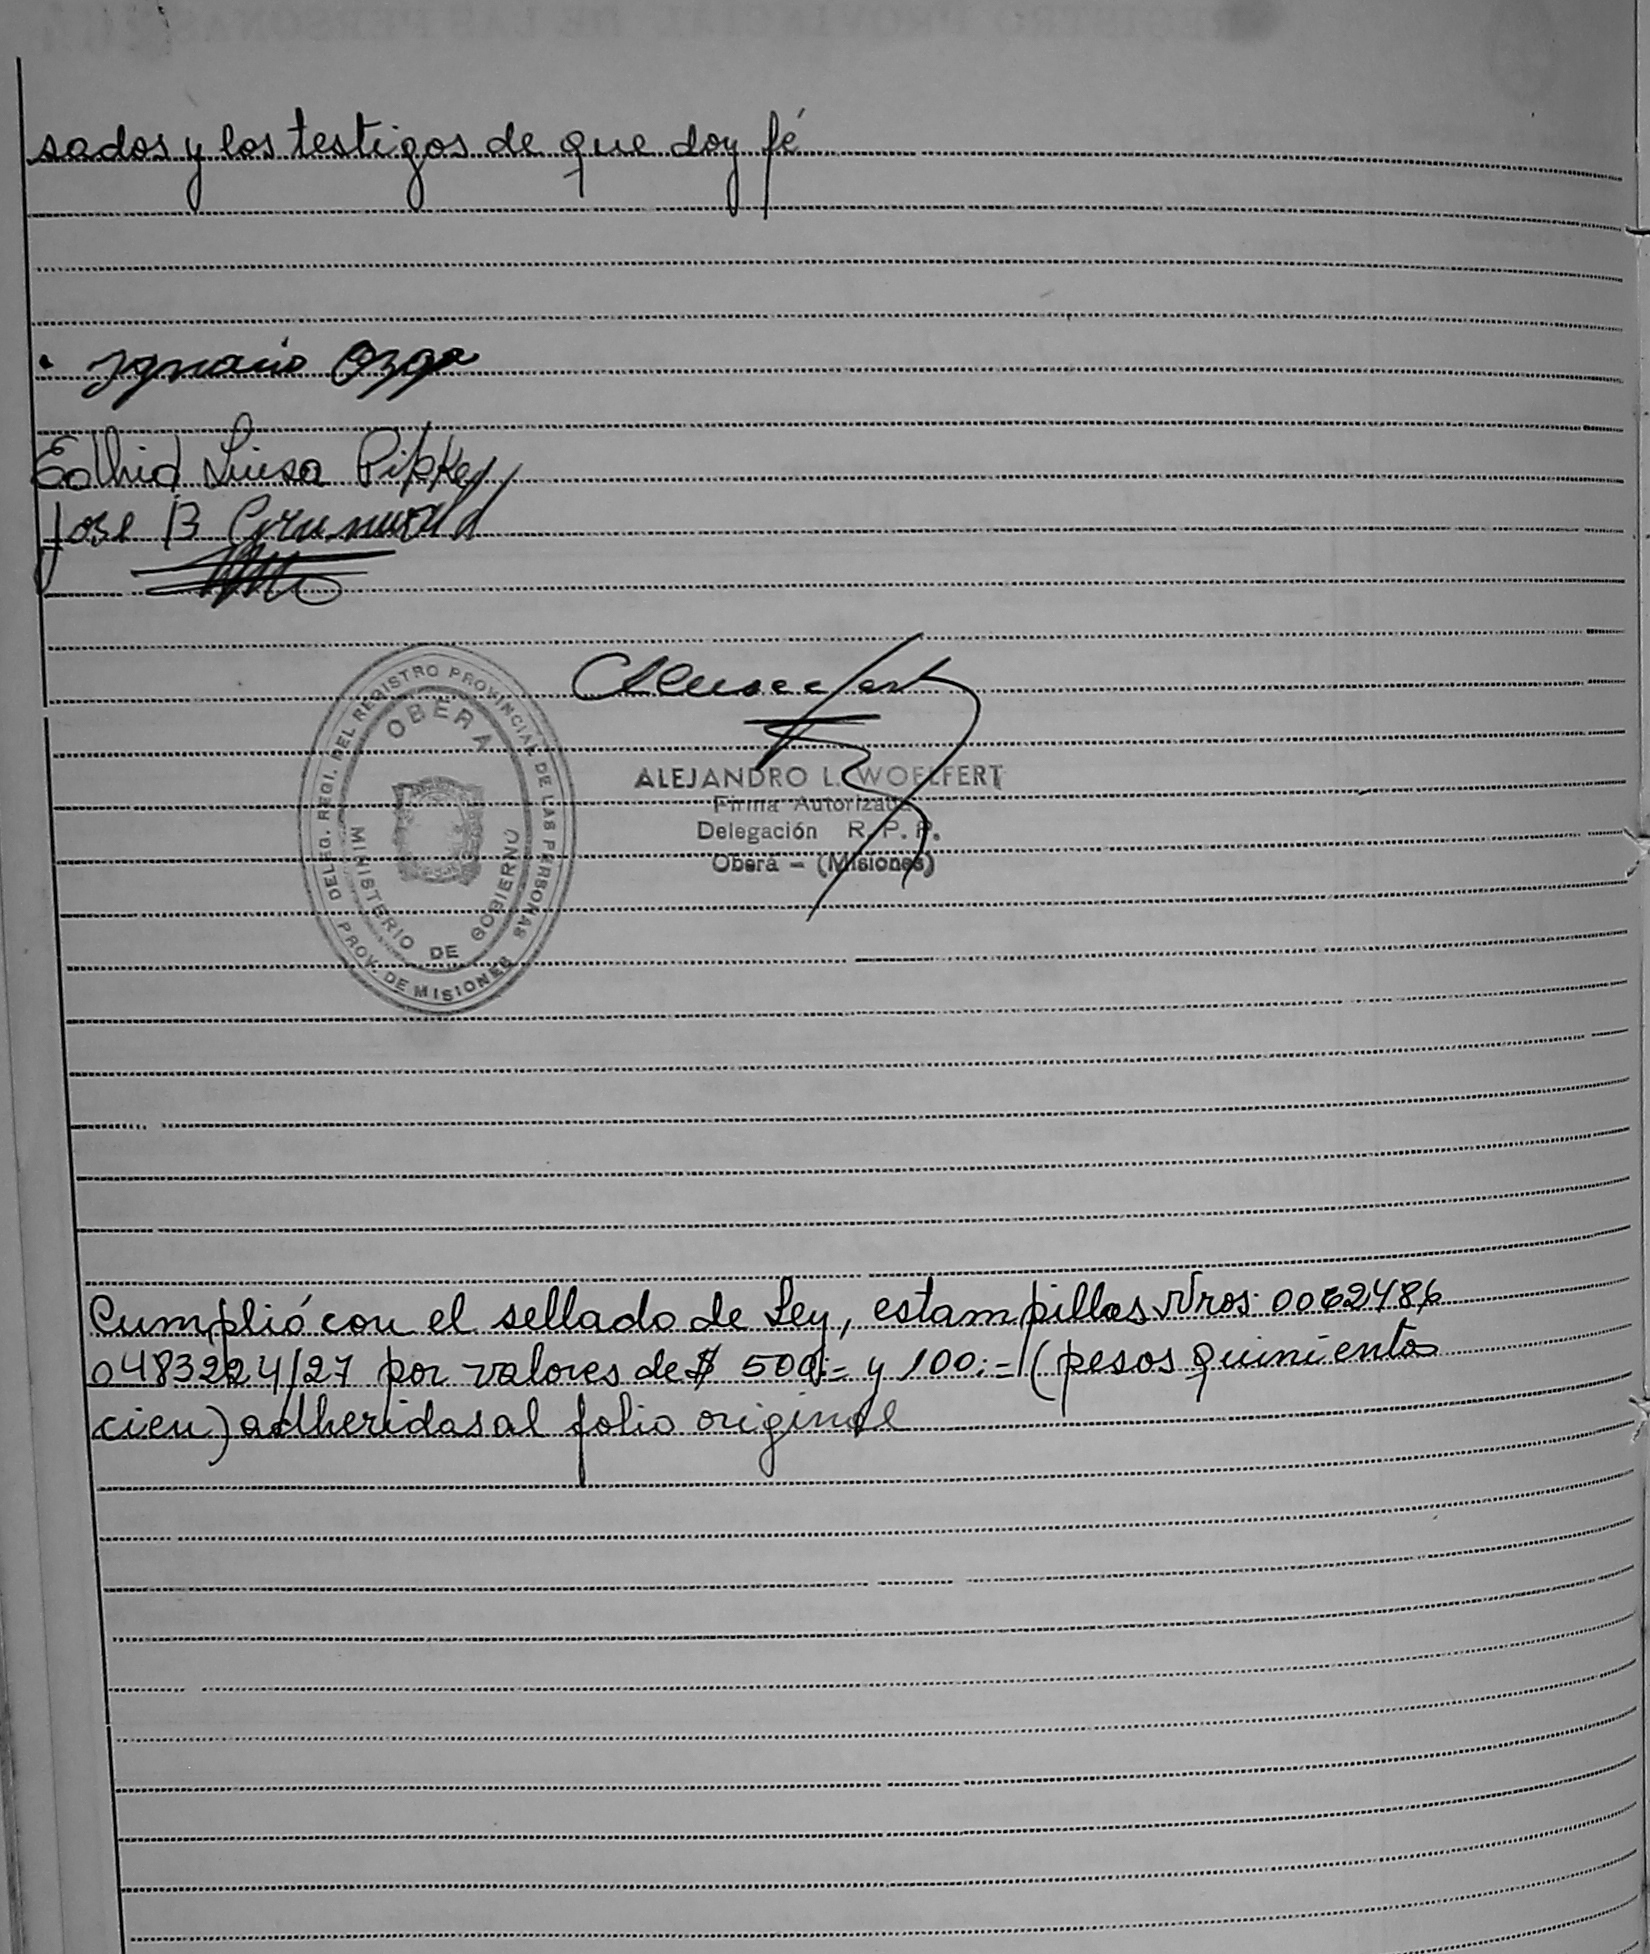 sados y los testigos de que doy fé
Ignacio Ozga
Edhid Luisa Pipke
Jose B Grunwald
DELEG. REGI. DEL REGISTRO PROVINCIAL DE LAS PERSONAS
OBERA
MINISTERIO DE GOBIERNO
PROV. DE MISIONES
ALEJANDRO L. WOELFERT
Firma Autorizada
Delegación R. P. P.
Oberá - (Misiones)
Cumplió con el sellado de Ley, estampillas Nros. 0062486
0483224/27 por valores de $ 500.= y 100.= (pesos quinientos
cien) adheridas al folio original